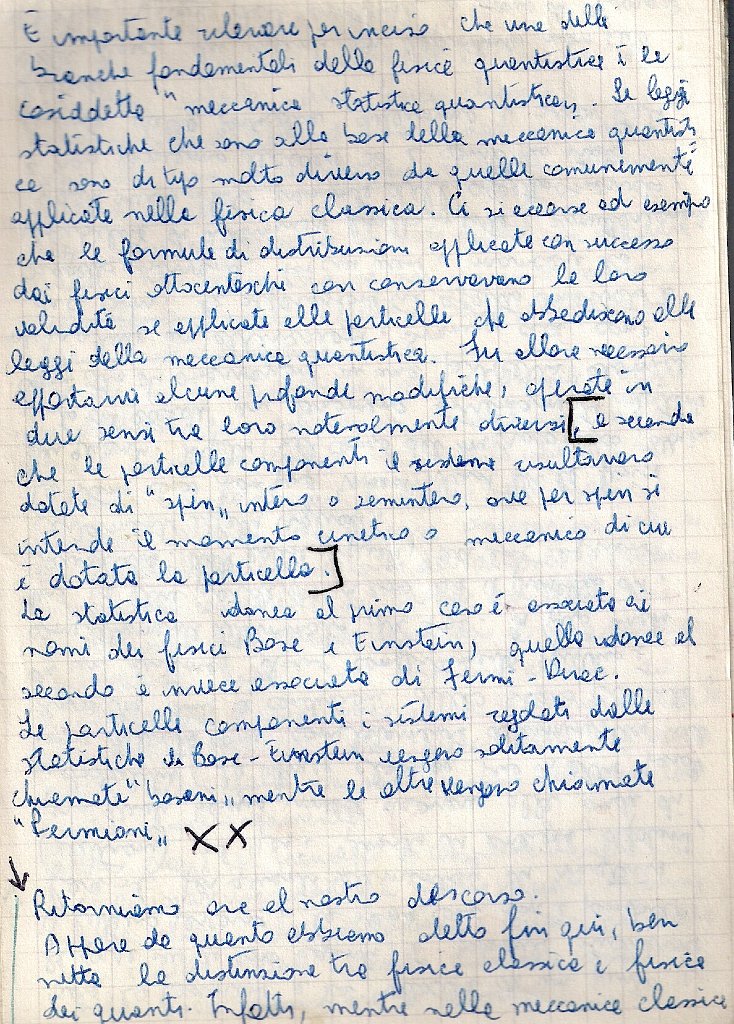 È importante rilevare per inciso che una delle
branche fondamentali della fisica quantistica è la
cosiddetta "meccanica statistica quantistica". Le leggi
statistiche che sono alla base della meccanica quantisti
ca sono di tipo molto diverso da quelle comunemente
applicate nella fisica classica. Ci si accorse ad esempio
che le formule di distribuzioni applicate con successo
dai fisici ottocenteschi non conservavano la loro
validità se applicate alle particelle che obbediscono alle
leggi della meccanica quantistica. Fu allora necessario
apportarvi alcune profonde modifiche, operate in
due sensi tra loro notevolmente diversi [, a seconda
che le particelle componenti il sistema risultavano
dotate di "spin" intero o semintero, ove per spin si
intende il momento cinetico o meccanico di cui
è dotata la particella.]
La statistica idonea al primo caso è associata ai
nomi dei fisici Bose e Einstein, quella idonea al
secondo è invece associata di Fermi-Dirac.
Le particelle componenti i sistemi regolati dalle
statistiche di Bose-Einstein vengono solitamente
chiamate "bosoni" mentre le altre vengono chiamate
"Fermioni" XX
Ritorniamo ora al nostro discorso.
Appare da quanto abbiamo detto fin qui, ben
netta la distinzione tra fisica classica e fisica
dei quanti. Infatti, mentre nella meccanica classica